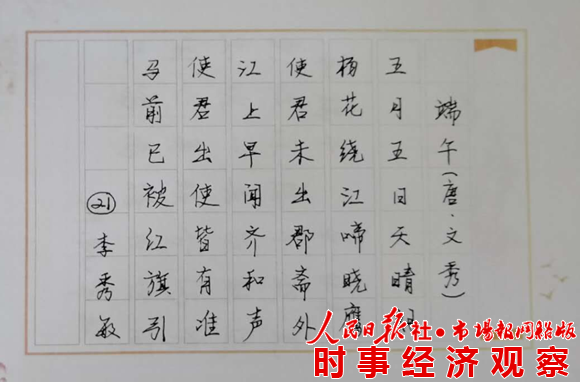 端午(唐·文秀)
五月五日天晴
杨花绕江啼晓鹰
使君未出郡斋外
江上早闻齐和声
使君出使皆有准
马前已被红旗引
21 李秀敏
人民日报社·市场报网络版
时事经济观察